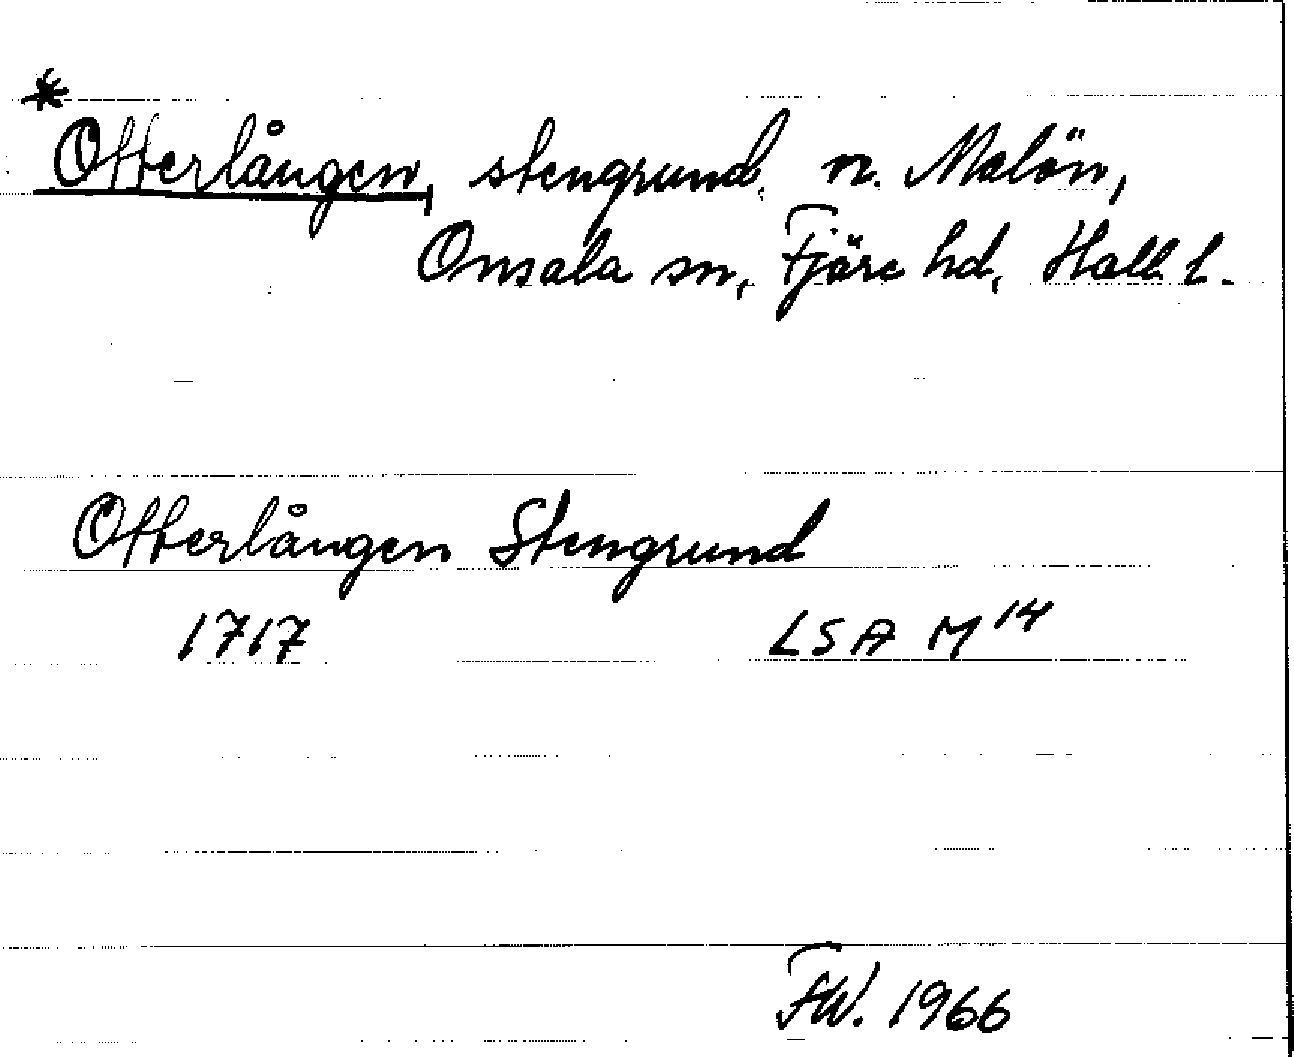 *
Otterlången, stengrund, n. Malön,
Onsala sn, Fjäre hd, Hall. l.
Otterlången Stengrund
1717 LSA M 14
FW. 1966